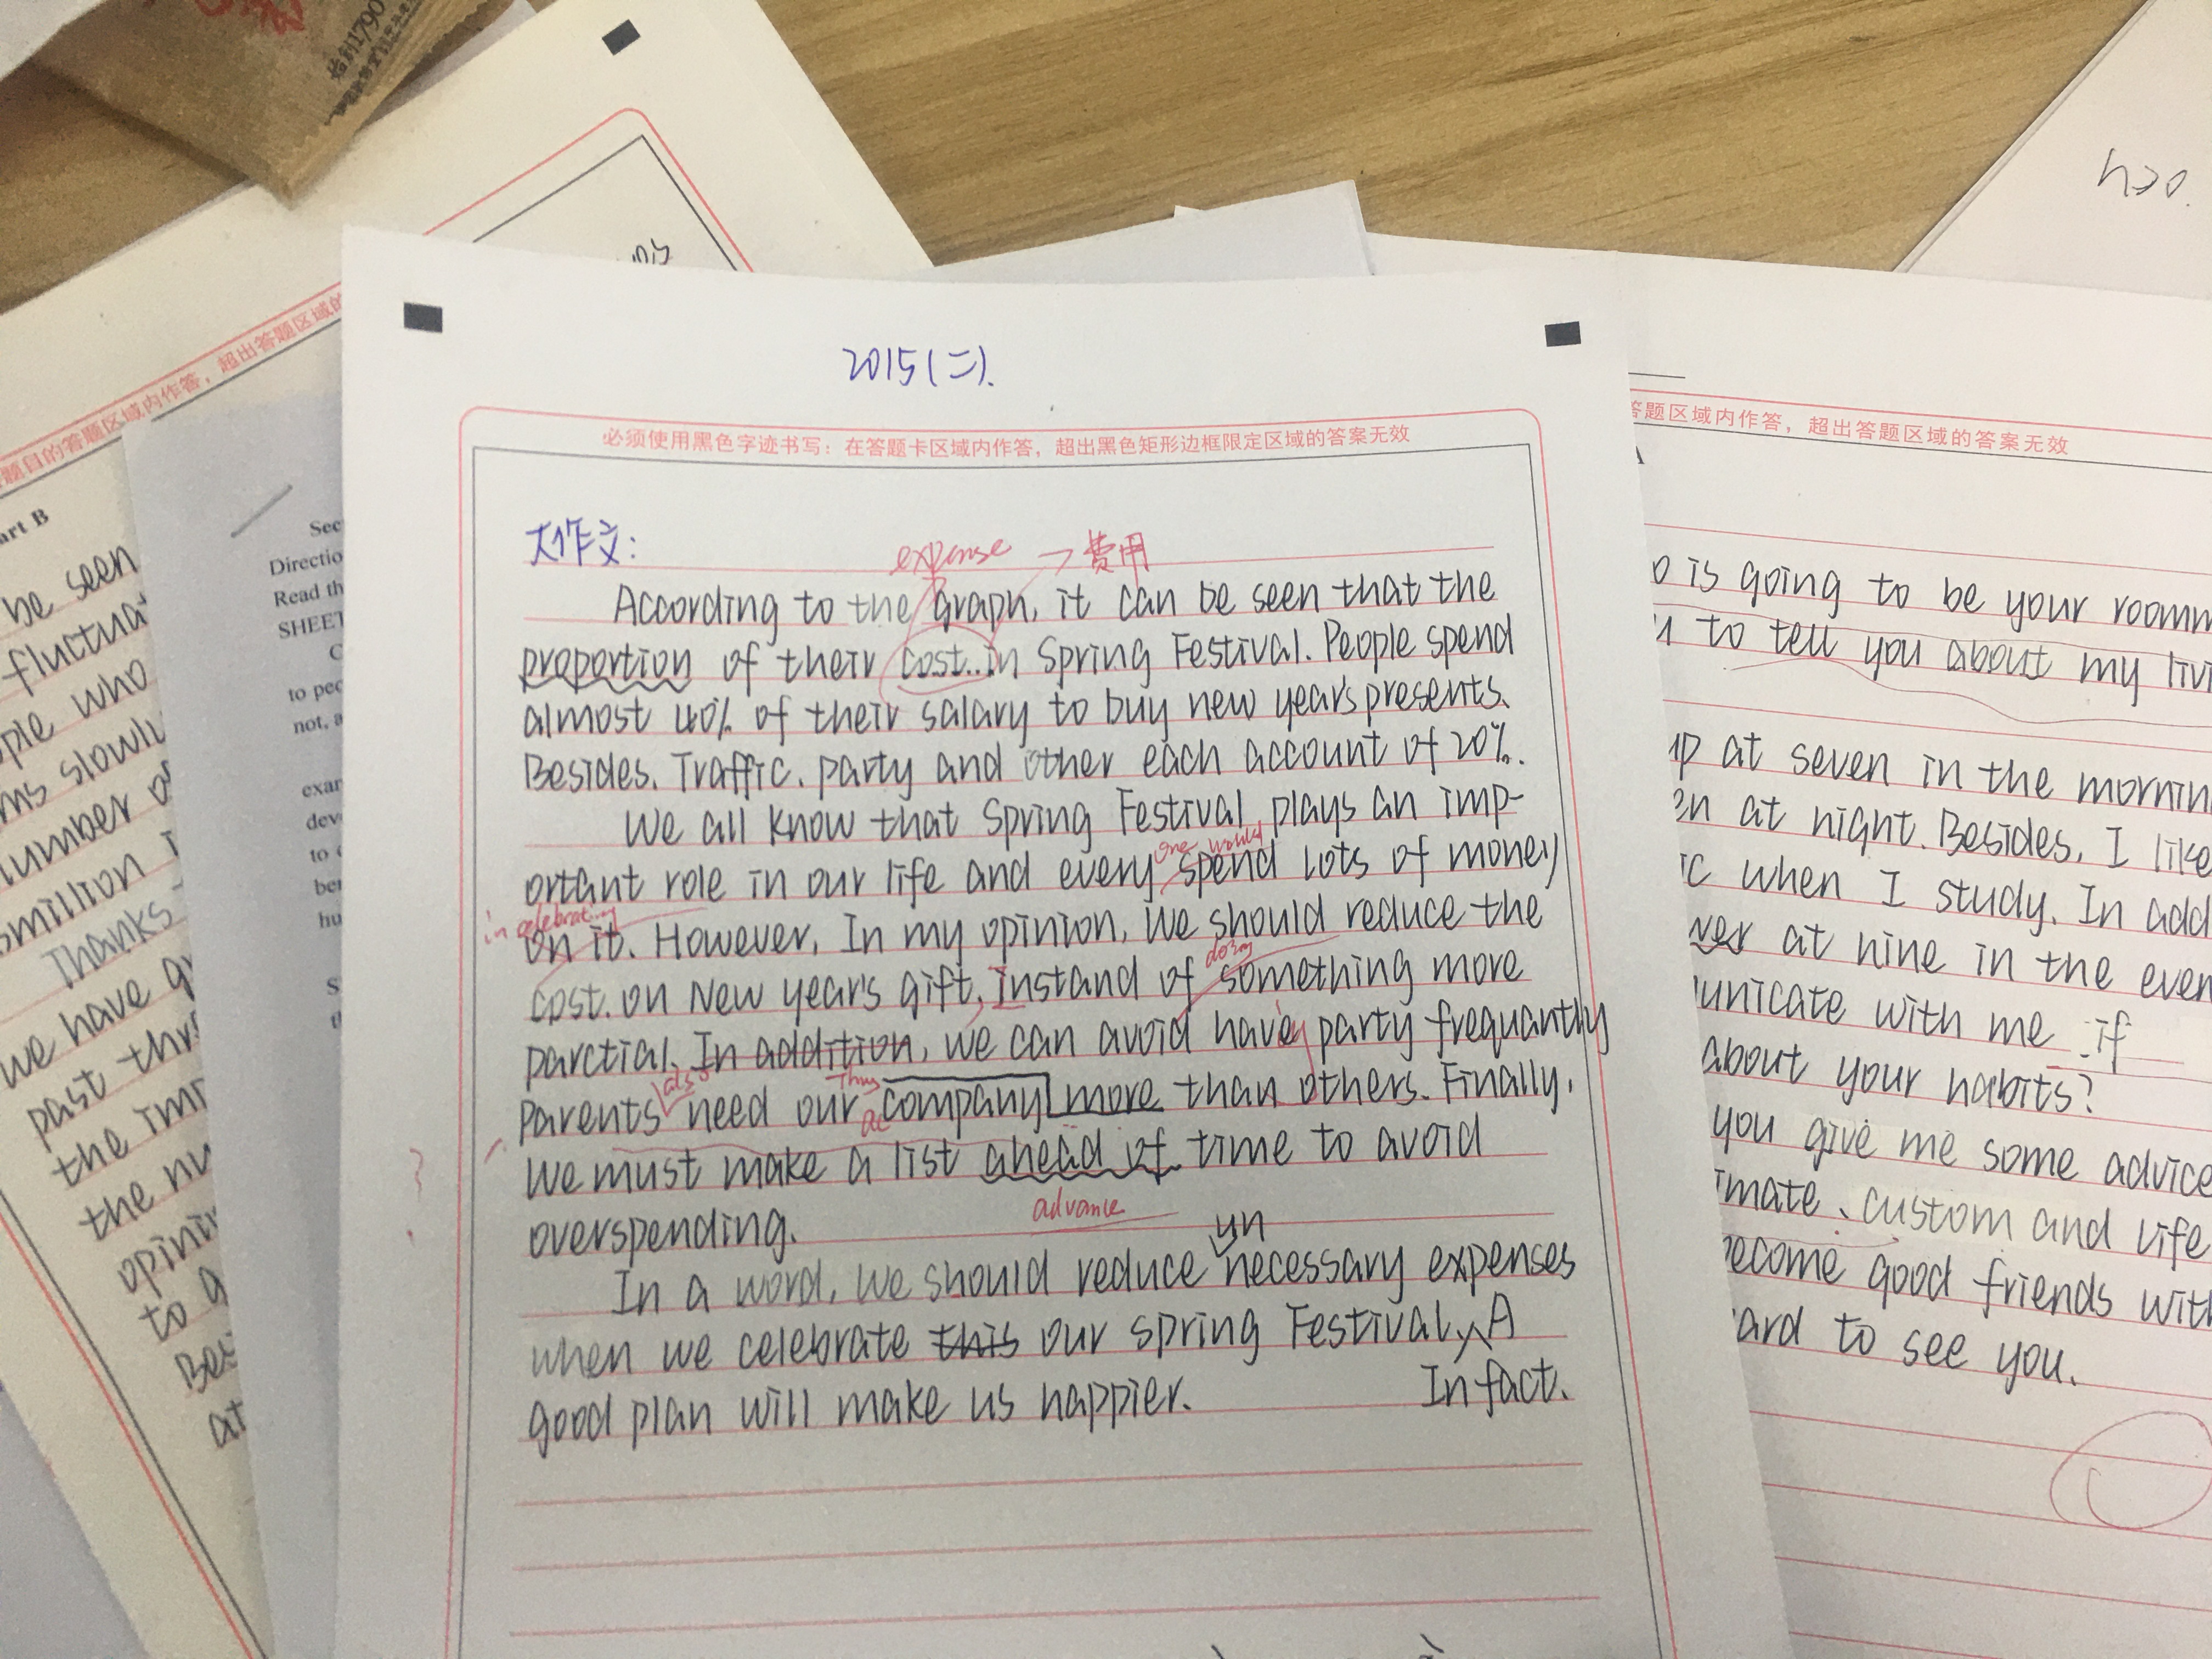 2015(二).
必须使用黑色字迹书写：在答题卡区域内作答，超出黑色矩形边框限定区域的答案无效
大作文:
expense → 费用
According to the graph, it can be seen that the
proportion of their cost in Spring Festival. People spend
almost 40% of their salary to buy new year's presents.
Besides. Traffic. party and other each account of 20%.
We all know that Spring Festival plays an imp-
one would
ortant role in our life and every spend lots of money
in celebrating
on it. However, In my opinion, we should reduce the
doing
cost. on New year's gift, Instand of something more
parctial. In addition, we can avoid have party frequantly
also Thus
parents need our company more than others. Finally,
we must make a list ahead of time to avoid
advance
overspending.
un
In a word, we should reduce necessary expenses
when we celebrate this our spring Festival, A
good plan will make us happier. In fact.
超出答题区域的
题目的答题区域内作答，
art B
be seen
fluctua
ople who
ms slowly
number o
million
Thanks
we have g
past thr
the im
the nu
opini
to a
Bei
at
Sec
Directio
Read th
SHEET
C
to pec
not, a
exar
deve
to
ber
hu
S
答题区域内作答，超出答题区域的答案无效
o is going to be your roomm
u to tell you about my livi
up at seven in the mornin
en at night. Besides, I like
ic when I study. In add
ver at nine in the even
unicate with me if
about your habits?
you give me some advice
imate、custom and life
become good friends with
ard to see you.